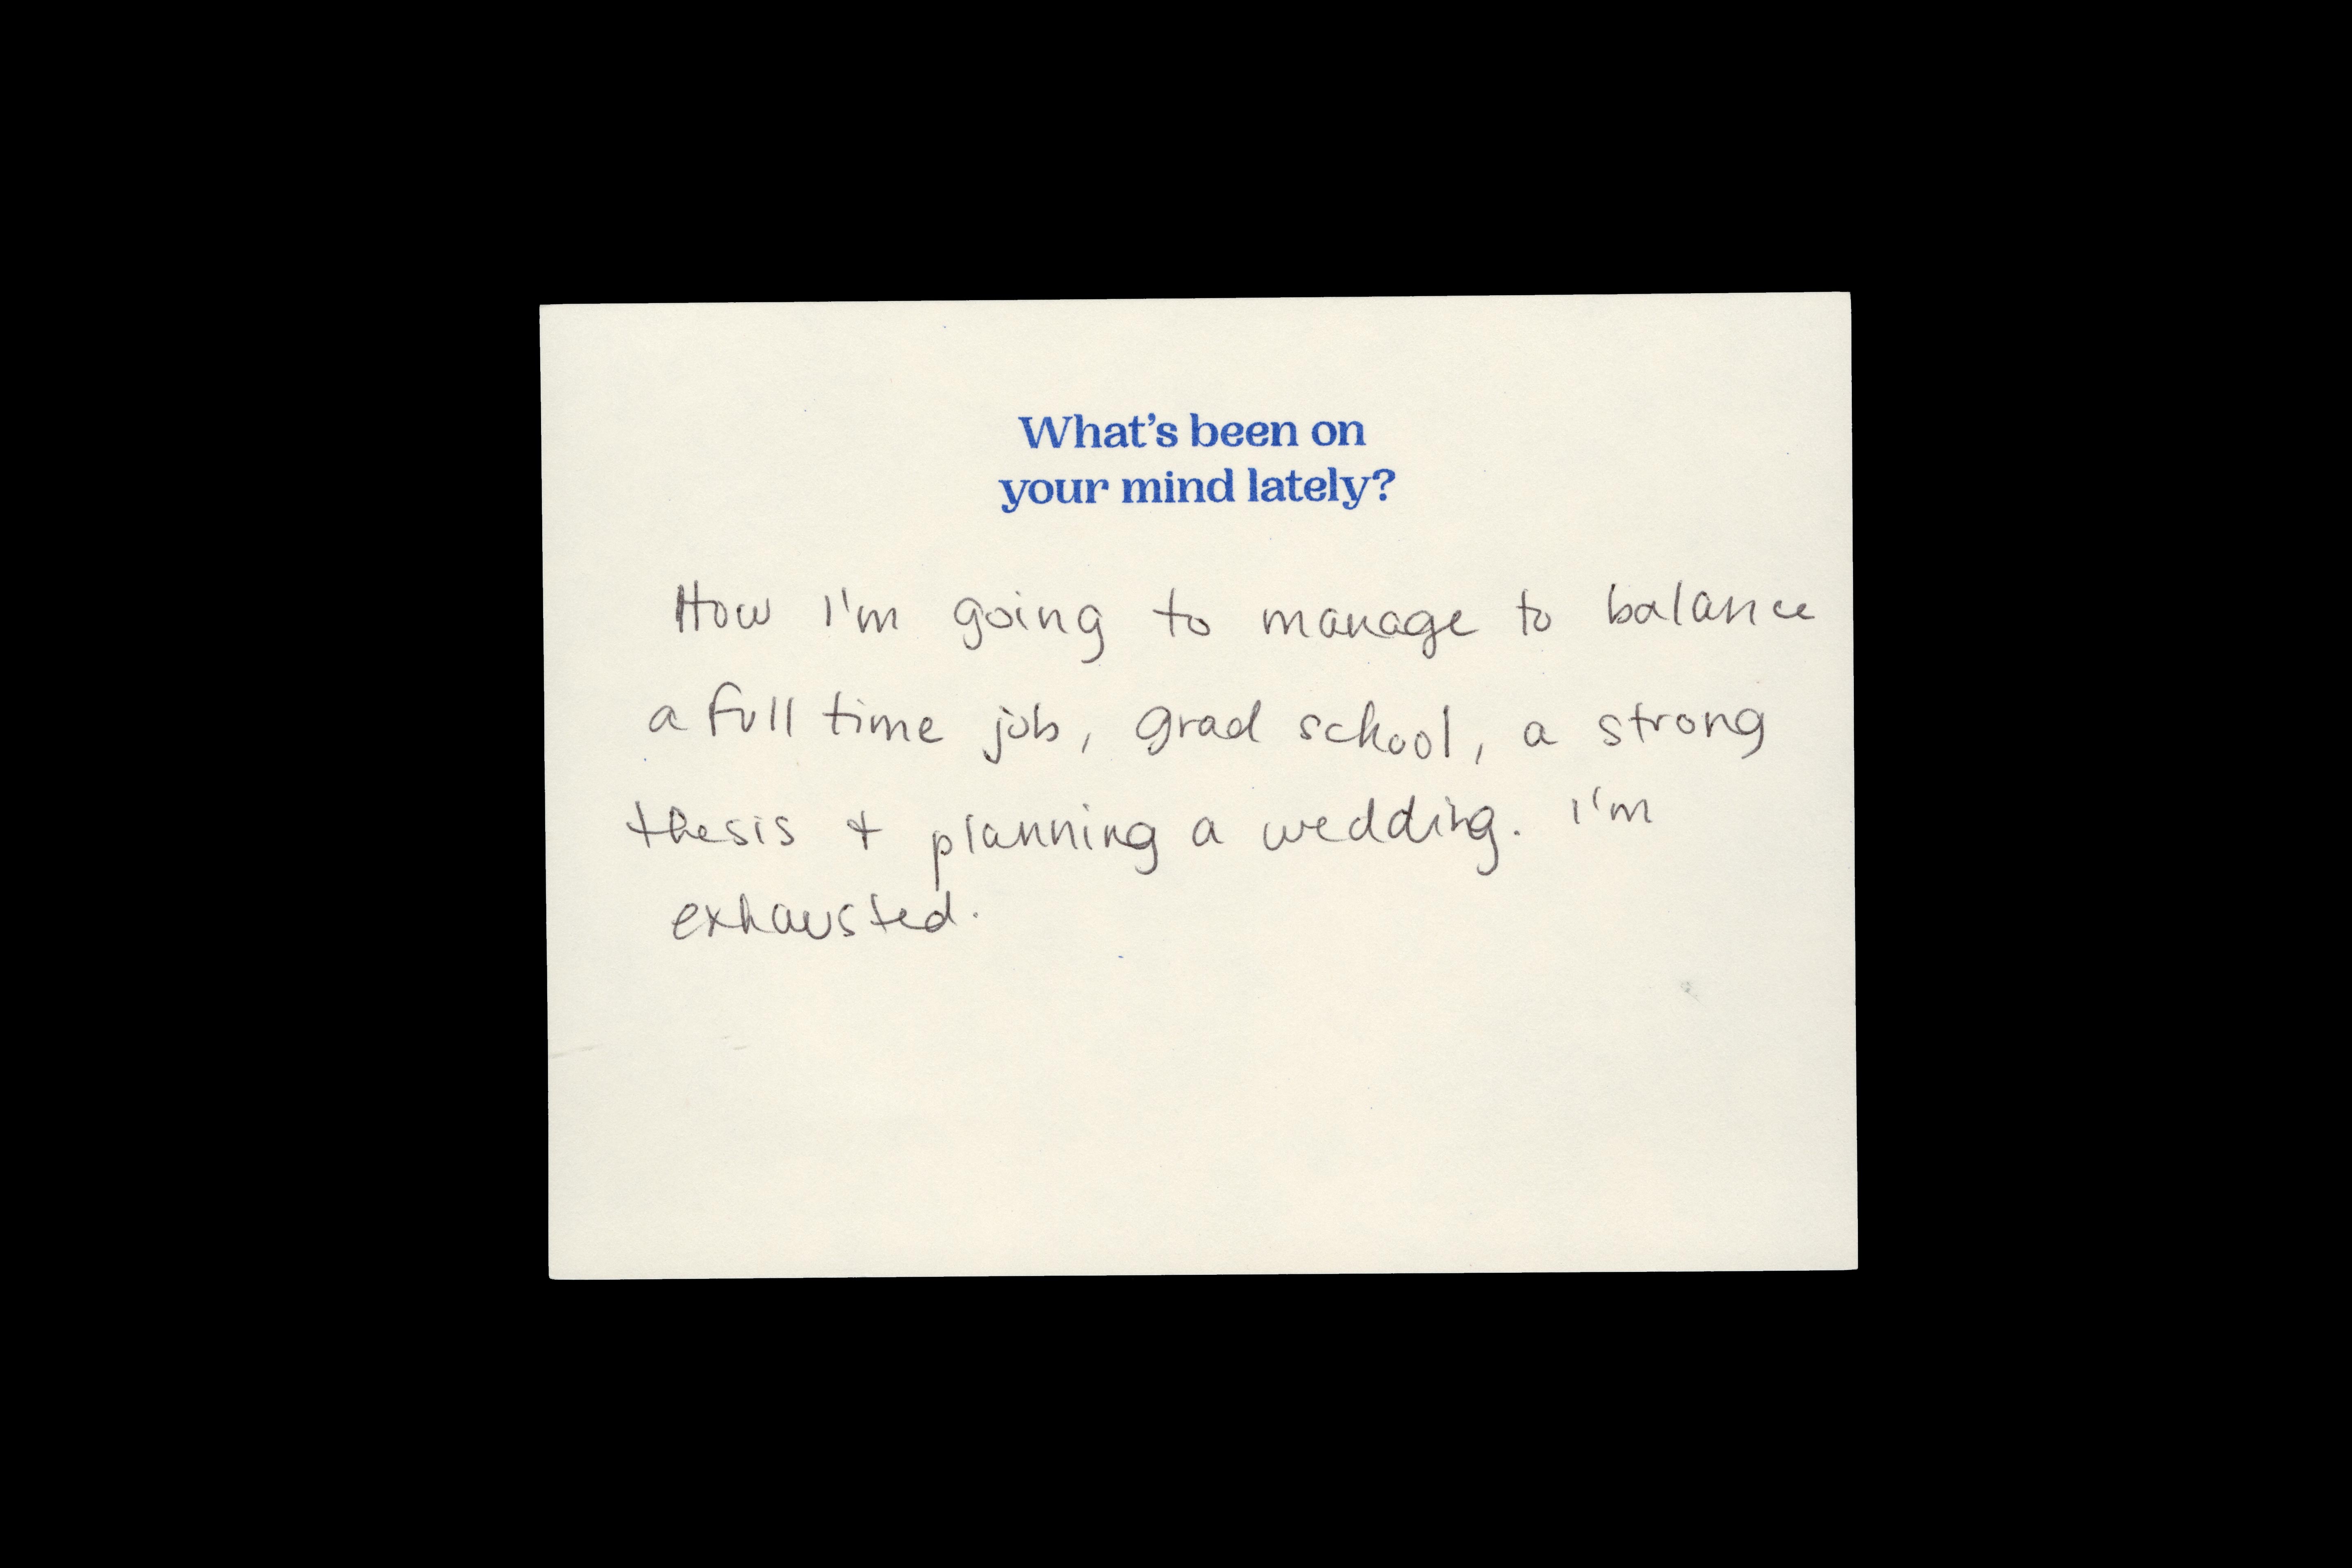 What's been on
your mind lately?
How I'm going to manage to balance
a full time job, grad school, a strong
thesis + planning a wedding. I'm
exhausted.